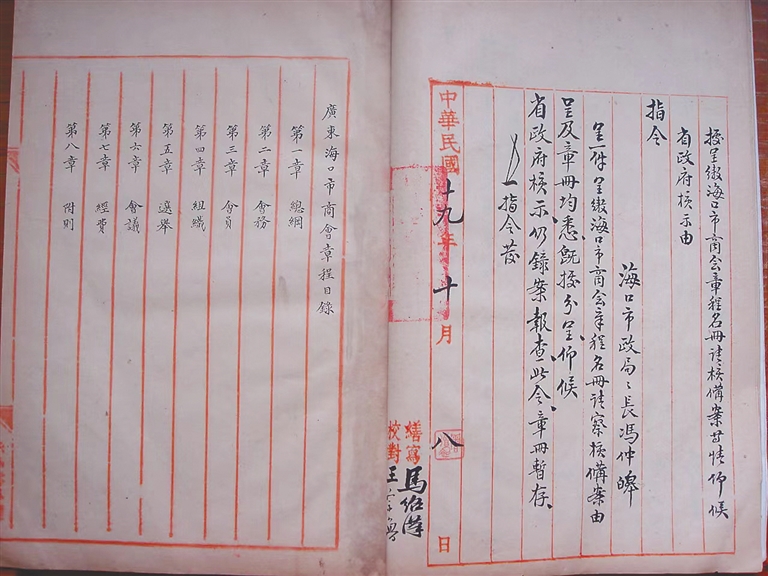 據呈繳海口市商会章程名冊請核備案等情仰候
省政府核示由
指令
海口市政局々長馮仲皞
呈一件呈繳海口市商会章程名冊請察核備案由
呈及章冊均悉既據分呈仰候
省政府核示仍錄案報查此令章冊暫存
指令發
中華民國十九年十月八日
繕寫馬紹
校對王
廣東海口市商會章程目錄
第一章 總綱
第二章 會務
第三章 會員
第四章 組織
第五章 選舉
第六章 會議
第七章 經費
第八章 附則